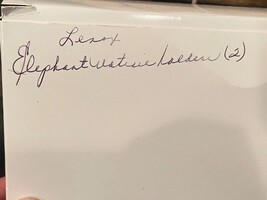 Lenox
Elephant Votive holders (2)